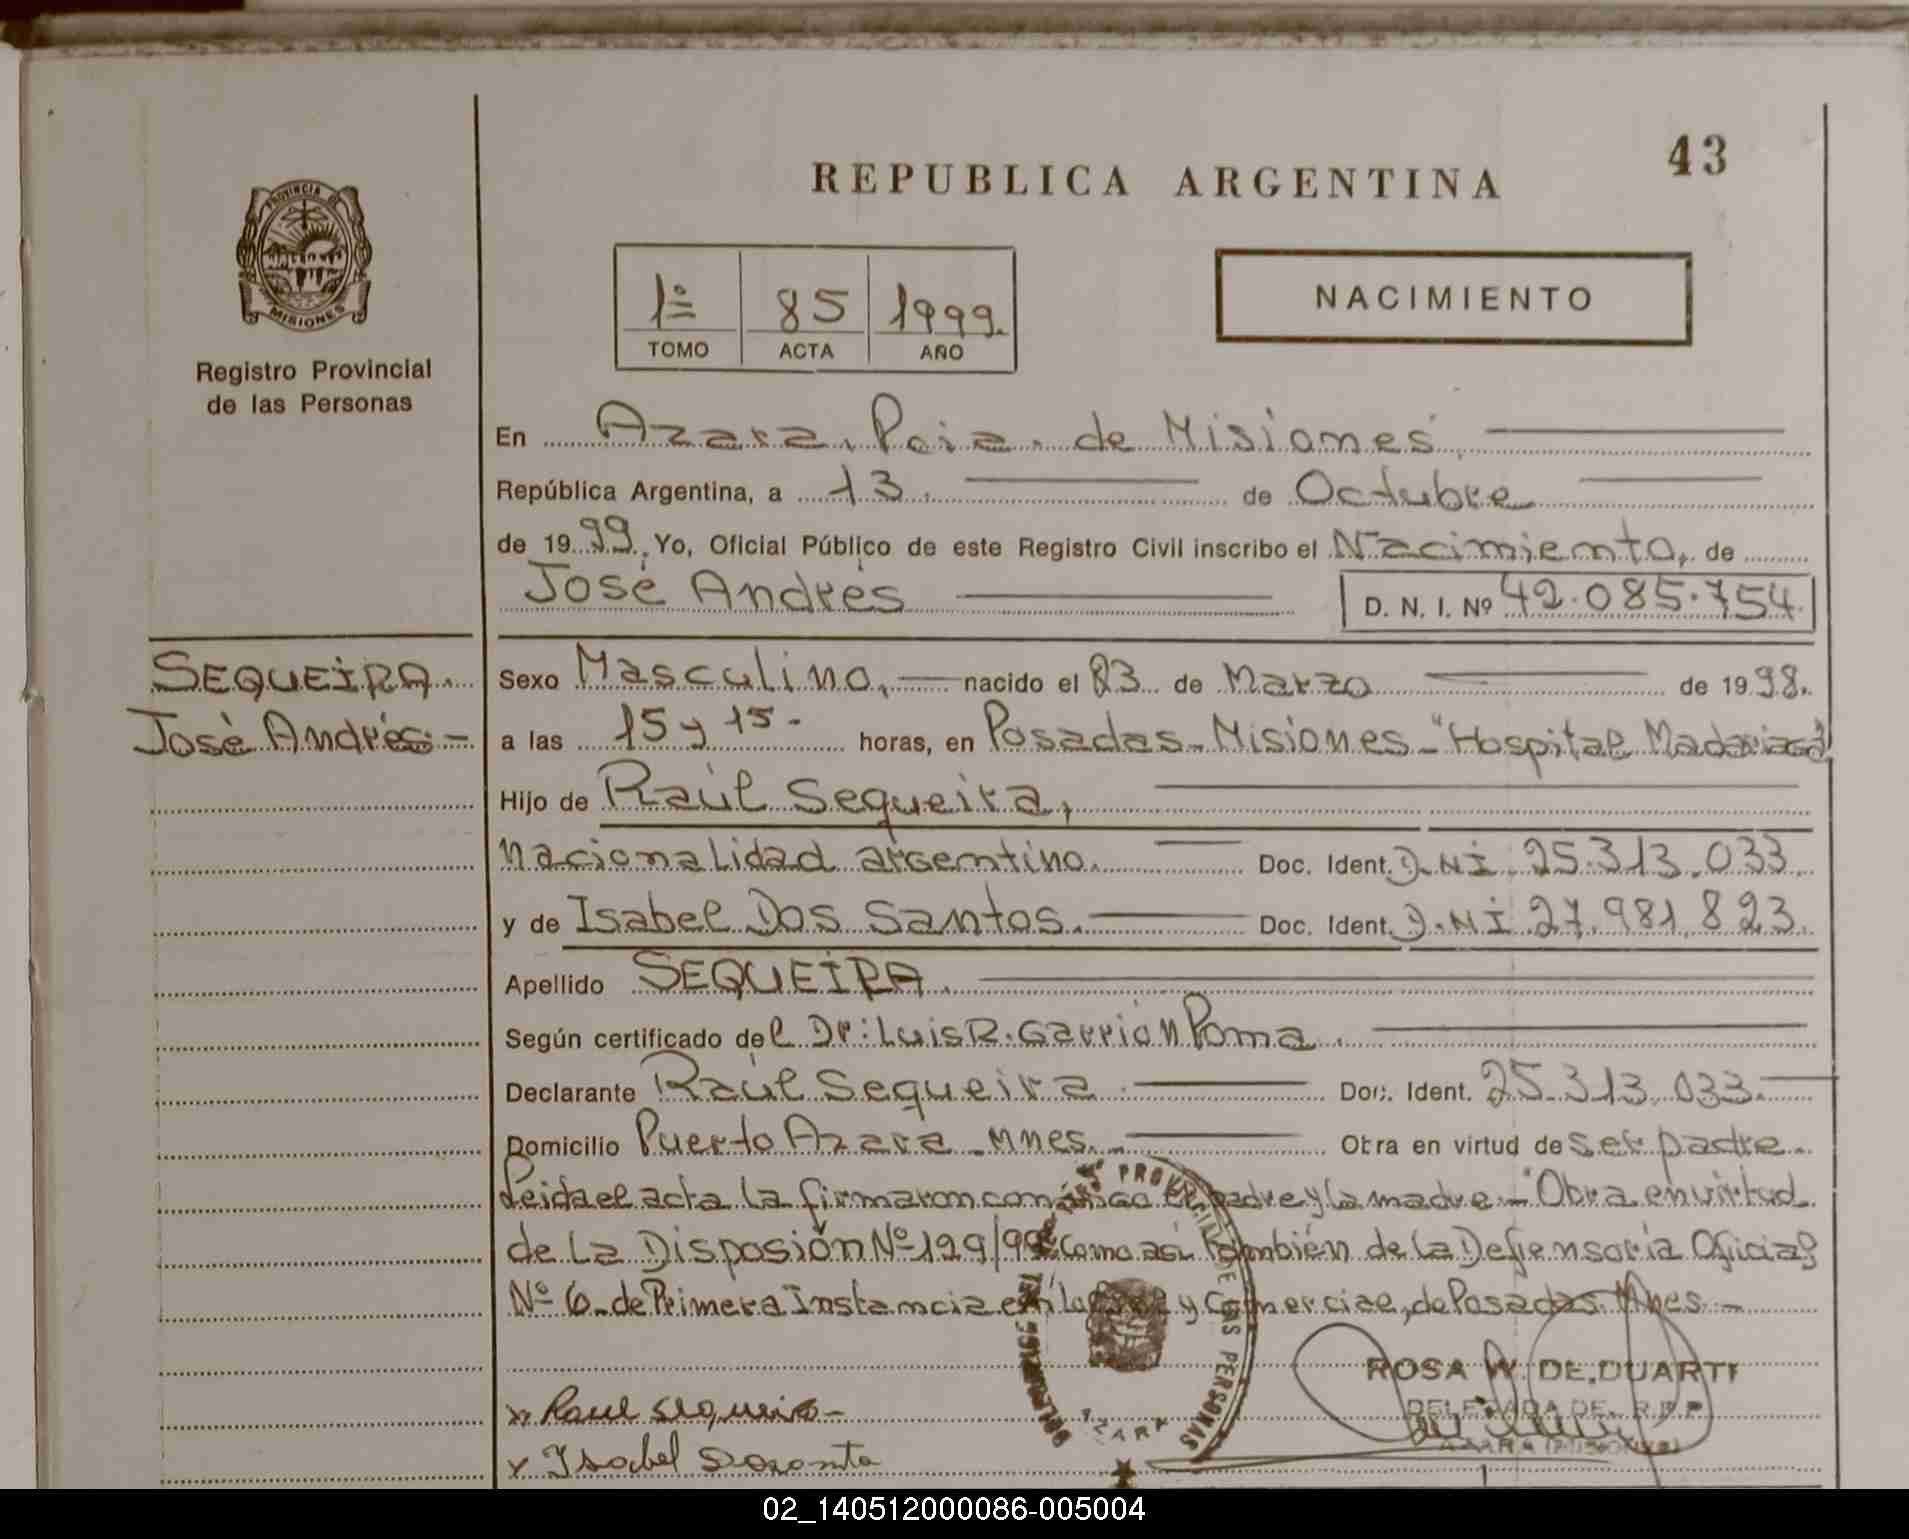 43
REPUBLICA ARGENTINA
PROVINCIA DE
MISIONES
Registro Provincial
de las Personas
1º 85 1999.
TOMO ACTA AÑO
NACIMIENTO
En Azara, Pcia. de Misiones.
República Argentina, a 13. de Octubre
de 1999. Yo, Oficial Público de este Registro Civil inscribo el Nacimiento, de
José Andrés D. N. I. Nº 42.085.754.
SEQUEIRA.
José Andrés-
Sexo Masculino, nacido el 23 de Marzo de 1998.
a las 15 y 15- horas, en Posadas-Misiones-"Hospital Madariaga"
Hijo de Raúl Sequeira,
nacionalidad argentino. Doc. Ident. D.NI. 25.313.033.
y de Isabel Dos Santos. Doc. Ident. D.NI. 27.981.823.
Apellido SEQUEIRA.
Según certificado del Dr: Luis R. Garrión Poma.
Declarante Raúl Sequeira. Doc. Ident. 25.313.033.
Domicilio Puerto Azara-Mnes.- Obra en virtud de ser padre.
Leida el acta la firmaron conmigo el padre y la madre.-"Obra en virtud
de la Disposión Nº 199/99 como así también de la Defensoría Oficial
Nº 6-de Primera Instancia en lo y Comercial, de Posadas Mnes.-
PROVINCIAL DE LAS PERSONAS
AZARA
ROSA W. DE DUARTE
DELEGADA DEL R.P.P.
AZARA (MISIONES)
x Raul Sequeira-
x Isabel Dosanto
02_140512000086-005004